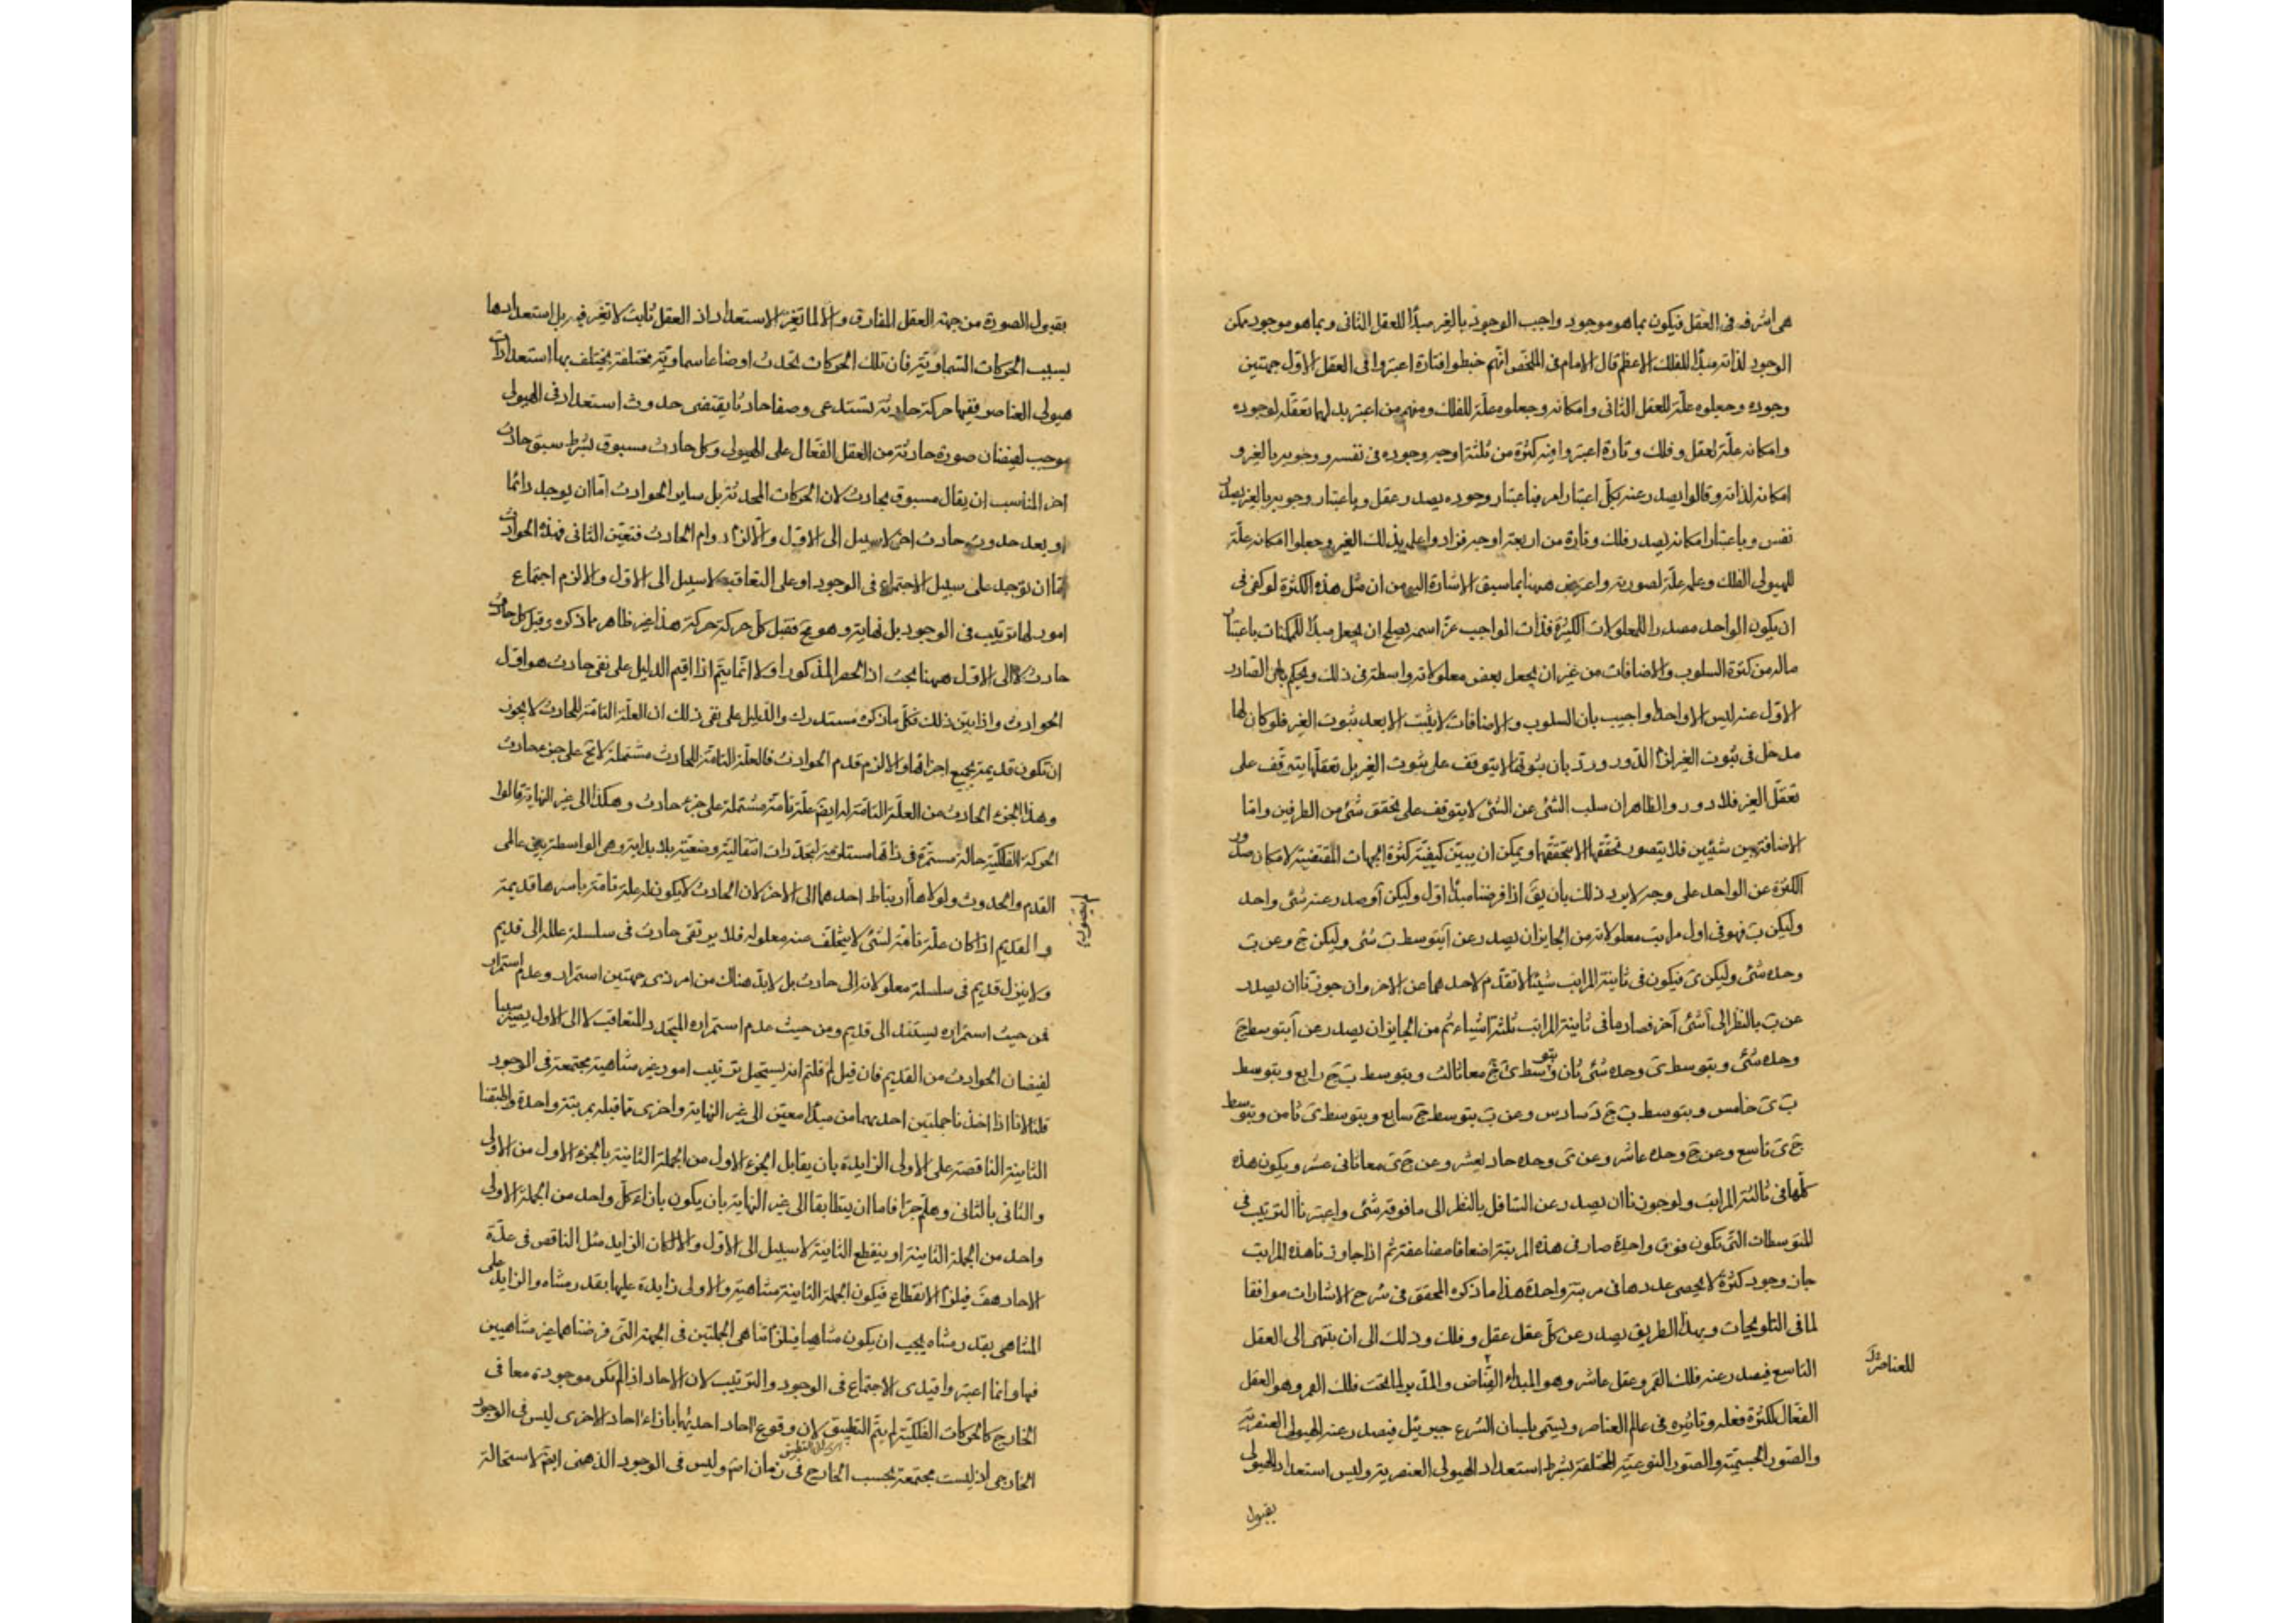 هى اشرفه فى العقل فيكون بما هو موجود واجب الوجود بالغير مبدأ للعقل الثانى وبما هو موجود ممكن
الوجود لذاته مبدأ للفلك الاعظم قال الامام فى الملخص انهم خبطوا فتارة اعتبروا فى العقل الاول جهتين
وجوده وجعلوه علّة للعقل الثانى وامكانه وجعلوه علّة للفلك ومنهم من اعتبر بدلهما تعقّله لوجوده
وامكانه علّة لعقل وفلك وتارة اعتبروا فيه كثرة من ثلثة اوجه وجوده فى نفسه ووجوبه بالغير و
امكانه لذاته وقالوا يصدر عنه بكلّ اعتبار امر فباعتبار وجوده يصدر عقل وباعتبار وجوبه بالغير يصدر
نفس وباعتبار امكانه يصدر فلك وتارة من اربعة اوجه فزادوا علمه بذلك الغير وجعلوا امكانه علّة
للهيولى الفلك وعلمه علّة لصورته واعترض ههنا بما سبق الاشارة اليه من ان مثل هذه الكثرة لو كفى فى
ان يكون الواحد مصدرا للمعلولات الكثيرة فذات الواجب عزّ اسمه يصلح ان يجعل مبدأ للممكنات باعتبار
ماله من كثرة السلوب والاضافات من غير ان يجعل بعض معلولاته واسطة فى ذلك ويحكم بان الصادر
الاول عنه ليس الا واحدا واجيب بان السلوب والاضافات لا يثبت الا بعد ثبوت الغير فلو كان لها
مدخل فى ثبوت الغير لزم الدور وردّ بان ثبوتها لا يتوقف على ثبوت الغير بل تعقلها يتوقف على
تعقّل الغير فلا دور والظاهر ان سلب الشئ عن الشئ لا يتوقف على تحقق شئ من الطرفين وامّا
الاضافة بين شيئين فلا يتصور تحققها الا بتحققهما ويمكن ان يبين كيفيّة كثرة الجهات المقتضية لامكان صدور
الكثرة عن الواحد على وجه لا يرد ذلك بان يقَ اذا فرضنا مبدأ اول وليكن آ وصدر عنه شئ واحد
وليكن بَ فهو فى اول مراتب معلولاته من الجايز ان يصدر عن آ بتوسط بَ شئ وليكن جَ وعن بَ
وحده شئ وليكن ىَ فيكون فى ثانية المراتب شيئا لا تقدّم لاحدهما عن الاخر وان جوزنا ان يصدر
عن بَ بالنظر الى آ شئ آخر فصار ما فى ثانية المراتب ثلثة اشياء ثم من الجايز ان يصدر عن آ بتوسط جَ
وحده شئ وبتوسط ىَ وحده شئ ثان وبتوسط ىَ جَ معا ثالث وبتوسط بَ جَ رابع وبتوسط
بَ ىَ خامس وبتوسط بَ جَ دَ سادس وعن بَ بتوسط جَ سابع وبتوسط ىَ ثامن وبتوسط
جَ ىَ تاسع وعن جَ وحده عاشر وعن ىَ وحده حاد يعشر وعن جَ ىَ معا ثانى عشر ويكون هذه
كلّها فى ثالثة المراتب ولو جوزنا ان يصدر عن السافل بالنظر الى ما فوقه شئ واعتبرنا الترتيب فى
المتوسطات التى تكون فوق واحدة صار فى هذه المرتبة اضعافا مضاعفة ثم اذا جاوزنا هذه المراتب
جاز وجود كثرة لا يحصى عددها فى مرتبة واحدة هذا ما ذكره المحقق فى شرح الاشارات موافقا
لما فى التلويحات وبهذا الطريق يصدر عن كلّ عقل عقل وفلك وذلك الى ان ينتهى الى العقل
التاسع فيصدر عنه فلك القمر وعقل عاشر وهو المبدأ الفيّاض والمدّبر لما تحت فلك القمر وهو العقل
للعناصر
الفعّال لكثرة فعله وتاثيره فى عالم العناصر ويسمى بلسان الشرع جبرئيل فيصدر عنه الهيولى العنصرية
والصور الجسميّة والصور النوعيّة المختلفة بشرط استعداد الهيولى العنصرية وليس استعداد الهيولى
بقبول
بقبول الصورة من جهة العقل المفارق والا لما تغيّر الاستعداد اذ العقل ثابت لا تغيّر فيه بل استعدادها
بسبب الحركات السّماويّة فان تلك الحركات تحدث اوضاعا سماويّة مختلفة يختلف بها استعدادات
هيولى العناصر ففيها حركة حادثة تستدعى وصفا حادثا يقتضى حدوث استعداد فى الهيولى
موجب لفيضان صورة حادثة من العقل الفعّال على الهيولى وكل حادث مسبوق بشرط سبق حادث
اخر المناسب ان يقال مسبوق بحادث لان الحركات المحدثة بل ساير الحوادث امّا ان يوجد دائما
او بعد حدوث حادث اخر لا سبيل الى الاول والا لزم دوام الحادث فتعيّن الثانى فهذه الحوادث
امّا ان توجد على سبيل الاجتماع فى الوجود او على التعاقب لا سبيل الى الاول والا لزم اجتماع
امور لها ترتيب فى الوجود بلا نهاية وهو مح فقبل كلّ حركة حركة هذا غير ظاهر مما ذكره وقبل كل حادث
حادث لا الى الاول ههنا بحث اذ الحصر المذكور اولا انّما يتم اذا اقيم الدليل على نفى حادث هو اول
الحوادث واذا بيّن ذلك فكلّ ما ذكره مستدرك والدّليل على نفى ذلك ان العلّة التامّة للحادث لا يجوز
ان تكون قديمة بجميع اجزائها والا لزم قدم الحوادث فالعلّة التامّة للحادث مشتملة لا مح على جزء حادث
وهذا الجزء الحادث من العلّة التامّة له ايضَ علّة تامّة مشتملة على جزء حادث وهكذا الى غير النهاية قالوا
الحركة الفلكيّة حالة مستمرّة فى ذاتها مستلزمة لتجدّدات انتقالية وضعيّة بلا بداية وهى الواسطة بين عالمى
القدم والحدوث ولولاها لم يتصور ارتباط احدهما الى الاخر لان الحادث لا يكون له علة تامّة باسرها قديمة
والقديم اذا كان علّة تامّة لشئ لا يتخلّف عنه معلوله فلا يرتقى حادث فى سلسلة علله الى قديم
ولا ينزل قديم فى سلسلة معلولاته الى حادث بل لا بدّ هناك من امر ذى جهتين استمرار وعدم استمرار
فمن حيث استمراره يستند الى قديم ومن حيث عدم استمراره المتجدد المتعاقب لا الى الاول يصير سببا
لفيضان الحوادث من القديم فان قيل لم قلتم انه يستحيل ترتيب امور غير متناهية مجتمعة فى الوجود
قلنا لانا اذا اخذنا جملتين احدهما من مبدأ معيّن الى غير النهاية واخرى مما قبله بمرتبة واحدة واطبقنا
الثانية الناقصة على الاولى الزايدة بان يقابل الجزء الاول من الجملة الثانية بالجزء الاول من الاولى
والثانى بالثانى وهلمّ جرّا فاما ان يتطابقا الى غير النهاية بان يكون بازاء كلّ واحد من الجملة الاولى
واحد من الجملة الثانية او ينقطع الثانية لا سبيل الى الاول والا لكان الزايد مثل الناقص فى عدّة
الاحاد هف فيلزم الانقطاع فيكون الجملة الثانية متناهية والاولى زايدة عليها بقدر متناه والزايد على
المتناهى بقدر متناه يجب ان يكون متناهيا فيلزم تناهى الجملتين فى الجهة التى فرضناهما غير متناهيين
فيها وانما اعتبروا قيدى الاجتماع فى الوجود والترتيب لان الاحاد اذا لم تكن موجودة معا فى
الخارج كالحركات الفلكيّة لم يتمّ التطبيق لان وقوع احاد احديهما بازاء احاد الاخرى ليس فى الوجود
الخارجى اذ ليست مجتمعة بحسب الخارج فى زمان اصَ وليس فى الوجود الذهنى ايضَ لاستحالة